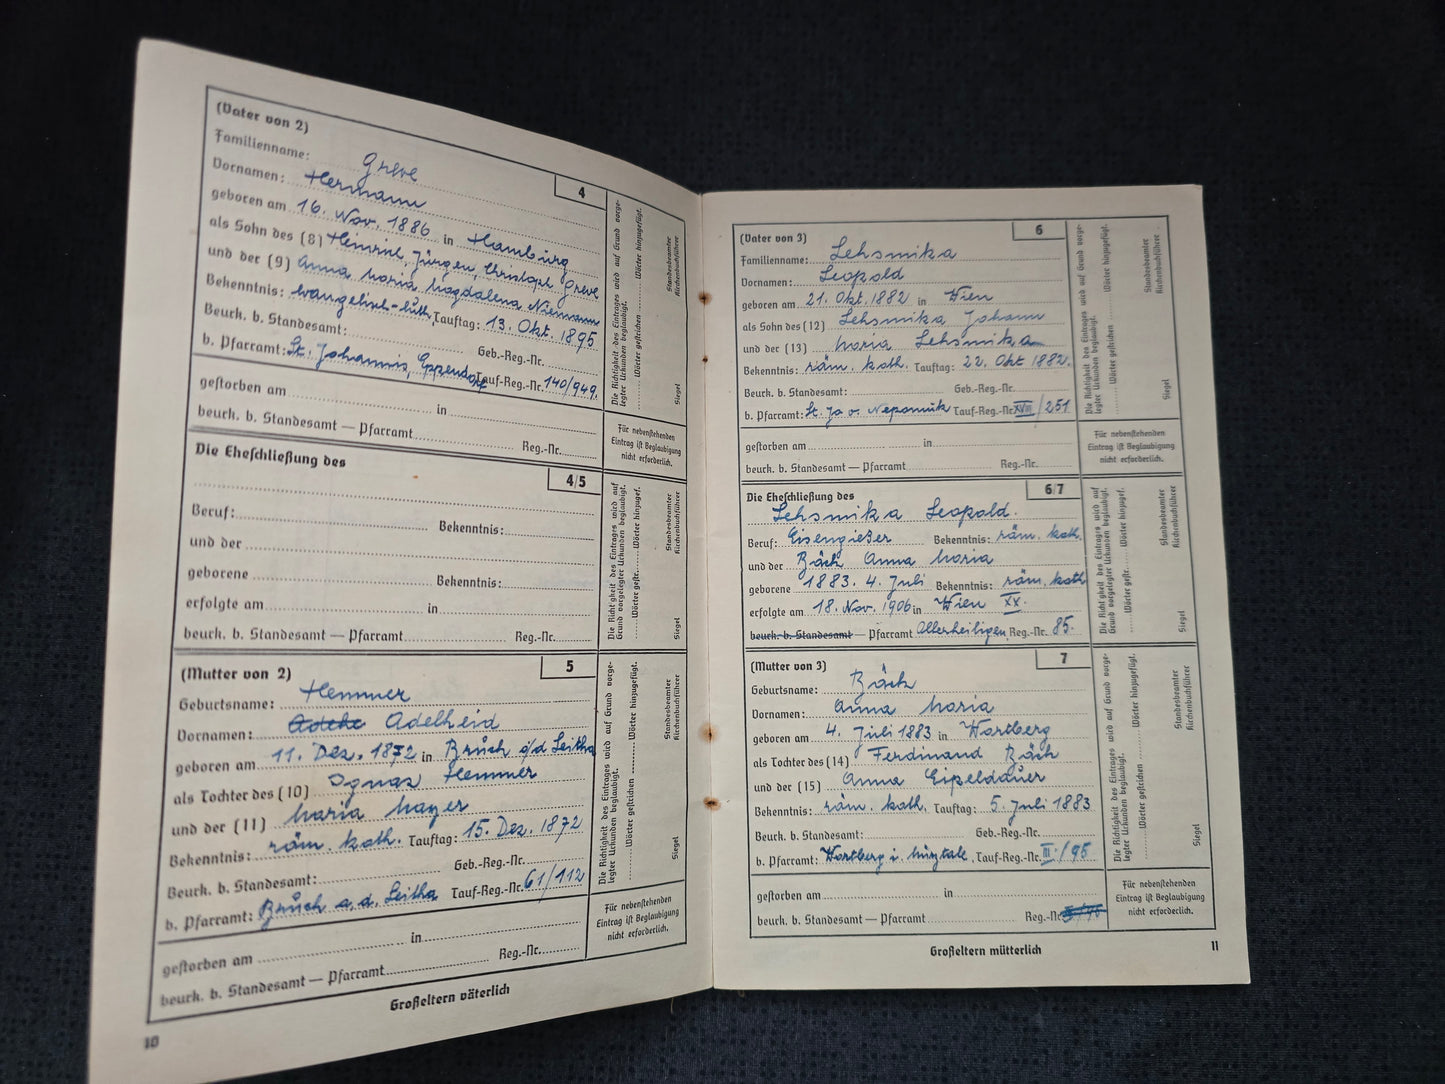 (Vater von 2)
4
Familienname: Greve
Vornamen: Hermann
geboren am 16. Nov. 1886 in Hamburg
als Sohn des (8) Heinrich, Jürgen, Christoph Greve
und der (9) Anna Maria Magdalena Niemann
Bekenntnis: evangelisch-luth. Tauftag: 13. Okt. 1895
Beurk. b. Standesamt: Geb.-Reg.-Nr.
b. Pfarramt: St. Johannis, Eppendorf Tauf-Reg.-Nr. 140/949.
gestorben am in
beurk. b. Standesamt — Pfarramt Reg.-Nr.
Die Richtigkeit des Eintrages wird auf Grund vorge-
legter Urkunden beglaubigt.
Wörter gestrichen Wörter hinzugefügt.
Standesbeamter
Kirchenbuchführer
Siegel
Für nebenstehenden
Eintrag ist Beglaubigung
nicht erforderlich.
Die Eheschließung des
4/5
Beruf: Bekenntnis:
und der
geborene Bekenntnis:
erfolgte am in
beurk. b. Standesamt — Pfarramt Reg.-Nr.
Die Richtigkeit des Eintrages wird auf
Grund vorgelegter Urkunden beglaubigt.
Wörter gestr. Wörter hinzugef.
Standesbeamter
Kirchenbuchführer
Siegel
(Mutter von 2)
5
Geburtsname: Hemmer
Vornamen: Adelheid
geboren am 11. Dez. 1872 in Bruch a/d Leitha
als Tochter des (10) Ignaz Hemmer
und der (11) Maria Mayer
Bekenntnis: röm. kath. Tauftag: 15. Dez. 1872
Beurk. b. Standesamt: Geb.-Reg.-Nr.
b. Pfarramt: Bruch a. d. Leitha Tauf-Reg.-Nr. 61/112
gestorben am in
beurk. b. Standesamt — Pfarramt Reg.-Nr.
Die Richtigkeit des Eintrages wird auf Grund vorge-
legter Urkunden beglaubigt.
Wörter gestrichen Wörter hinzugefügt.
Standesbeamter
Kirchenbuchführer
Siegel
Für nebenstehenden
Eintrag ist Beglaubigung
nicht erforderlich.
Großeltern väterlich
10
(Vater von 3)
6
Familienname: Lehsmika
Vornamen: Leopold
geboren am 21. Okt. 1882 in Wien
als Sohn des (12) Lehsmika Johann
und der (13) Maria Lehsmika
Bekenntnis: röm. kath. Tauftag: 22. Okt 1882.
Beurk. b. Standesamt: Geb.-Reg.-Nr.
b. Pfarramt: St. Jo v. Nepomuk Tauf-Reg.-Nr. XVIII/251
gestorben am in
beurk. b. Standesamt — Pfarramt Reg.-Nr.
Die Richtigkeit des Eintrages wird auf Grund vorge-
legter Urkunden beglaubigt.
Wörter gestrichen Wörter hinzugefügt.
Standesbeamter
Kirchenbuchführer
Siegel
Für nebenstehenden
Eintrag ist Beglaubigung
nicht erforderlich.
Die Eheschließung des
6/7
Lehsmika Leopold.
Beruf: Eisengießer Bekenntnis: röm. kath.
und der Bäck Anna Maria
geborene 1883. 4. Juli Bekenntnis: röm. kath
erfolgte am 18. Nov. 1906 in Wien XX.
beurk. b. Standesamt — Pfarramt Allerheiligen Reg.-Nr. 85.
Die Richtigkeit des Eintrages wird auf
Grund vorgelegter Urkunden beglaubigt.
Wörter gestr. Wörter hinzugef.
Standesbeamter
Kirchenbuchführer
Siegel
(Mutter von 3)
7
Geburtsname: Bäck
Vornamen: Anna Maria
geboren am 4. Juli 1883 in Wartberg
als Tochter des (14) Ferdinand Bäck
und der (15) Anna Eipeldauer
Bekenntnis: röm. kath. Tauftag: 5. Juli 1883
Beurk. b. Standesamt: Geb.-Reg.-Nr.
b. Pfarramt: Wartberg i. Mürztale Tauf-Reg.-Nr. III./95
gestorben am in
beurk. b. Standesamt — Pfarramt Reg.-Nr.
Die Richtigkeit des Eintrages wird auf Grund vorge-
legter Urkunden beglaubigt.
Wörter gestrichen Wörter hinzugefügt.
Standesbeamter
Kirchenbuchführer
Siegel
Für nebenstehenden
Eintrag ist Beglaubigung
nicht erforderlich.
Großeltern mütterlich
11